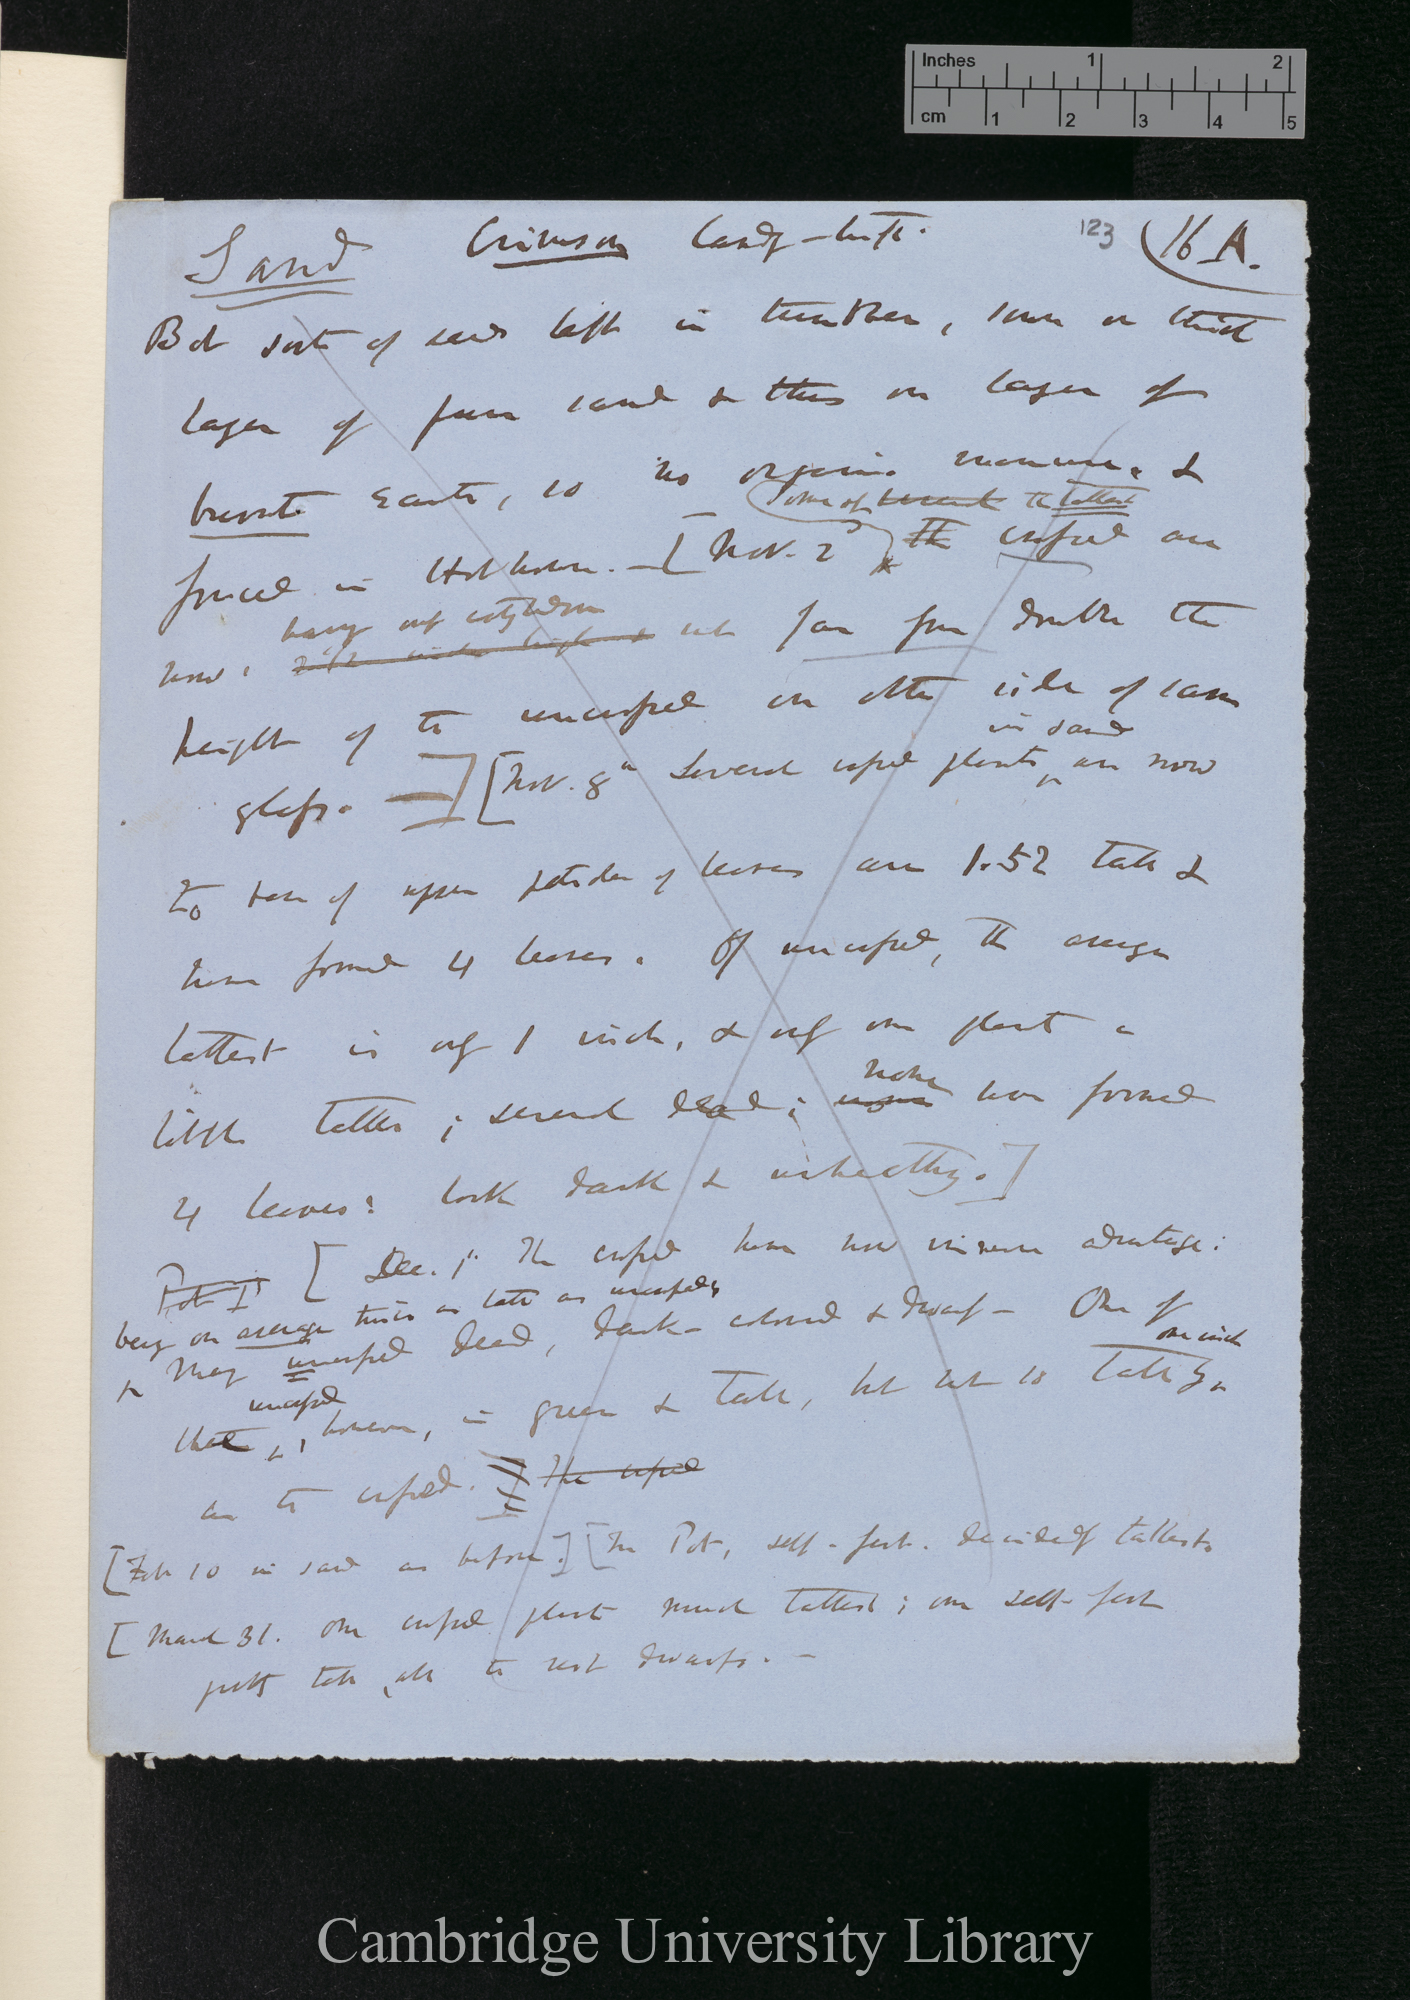 Inches 1 2
cm 1 2 3 4 5
Sand Crimson Candy-tuft. 123 16 A.
Both sorts of seeds left in tumbler, sown on thick
layer of pure sand & this on layer of
burnt Earth, so no organic manure. &
some of the tallest
forced in Hot house. — [Nov. 2 the crossed are
having only cotyledons
now, but far from double the
height of the uncrossed on other side of same
in sand
glass. —] [Nov. 8th Several crossed plants are now
to base of upper petioles of leaves are 1.52 tall &
have formed 4 leaves. Of uncrossed, the average
tallest is only 1 inch, & only one plant a
none
little taller; several dead; have formed
4 leaves: look dark & unhealthy.]
Pot I [Dec. 1st The crossed have now immense advantage:
being on average twice as tall as uncrossed
Many uncrossed dead, dark-colored & dwarf — One of
one inch
uncrossed
these, however, is green & tall, but not so tall by
as the crossed. The crossed
[Feb 10 in sand as before.] [In Pot, self-fert. decidedly tallest.
[March 31. One crossed plant much tallest; one self-fert
pretty tall, all the rest dwarfs. —
Cambridge University Library